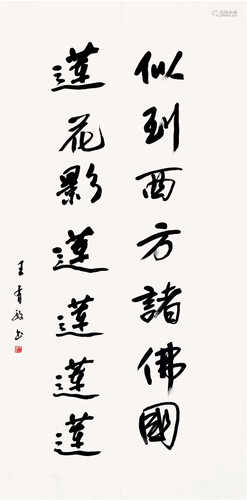 似到西方諸佛國
蓮花影蓮蓮蓮蓮
王